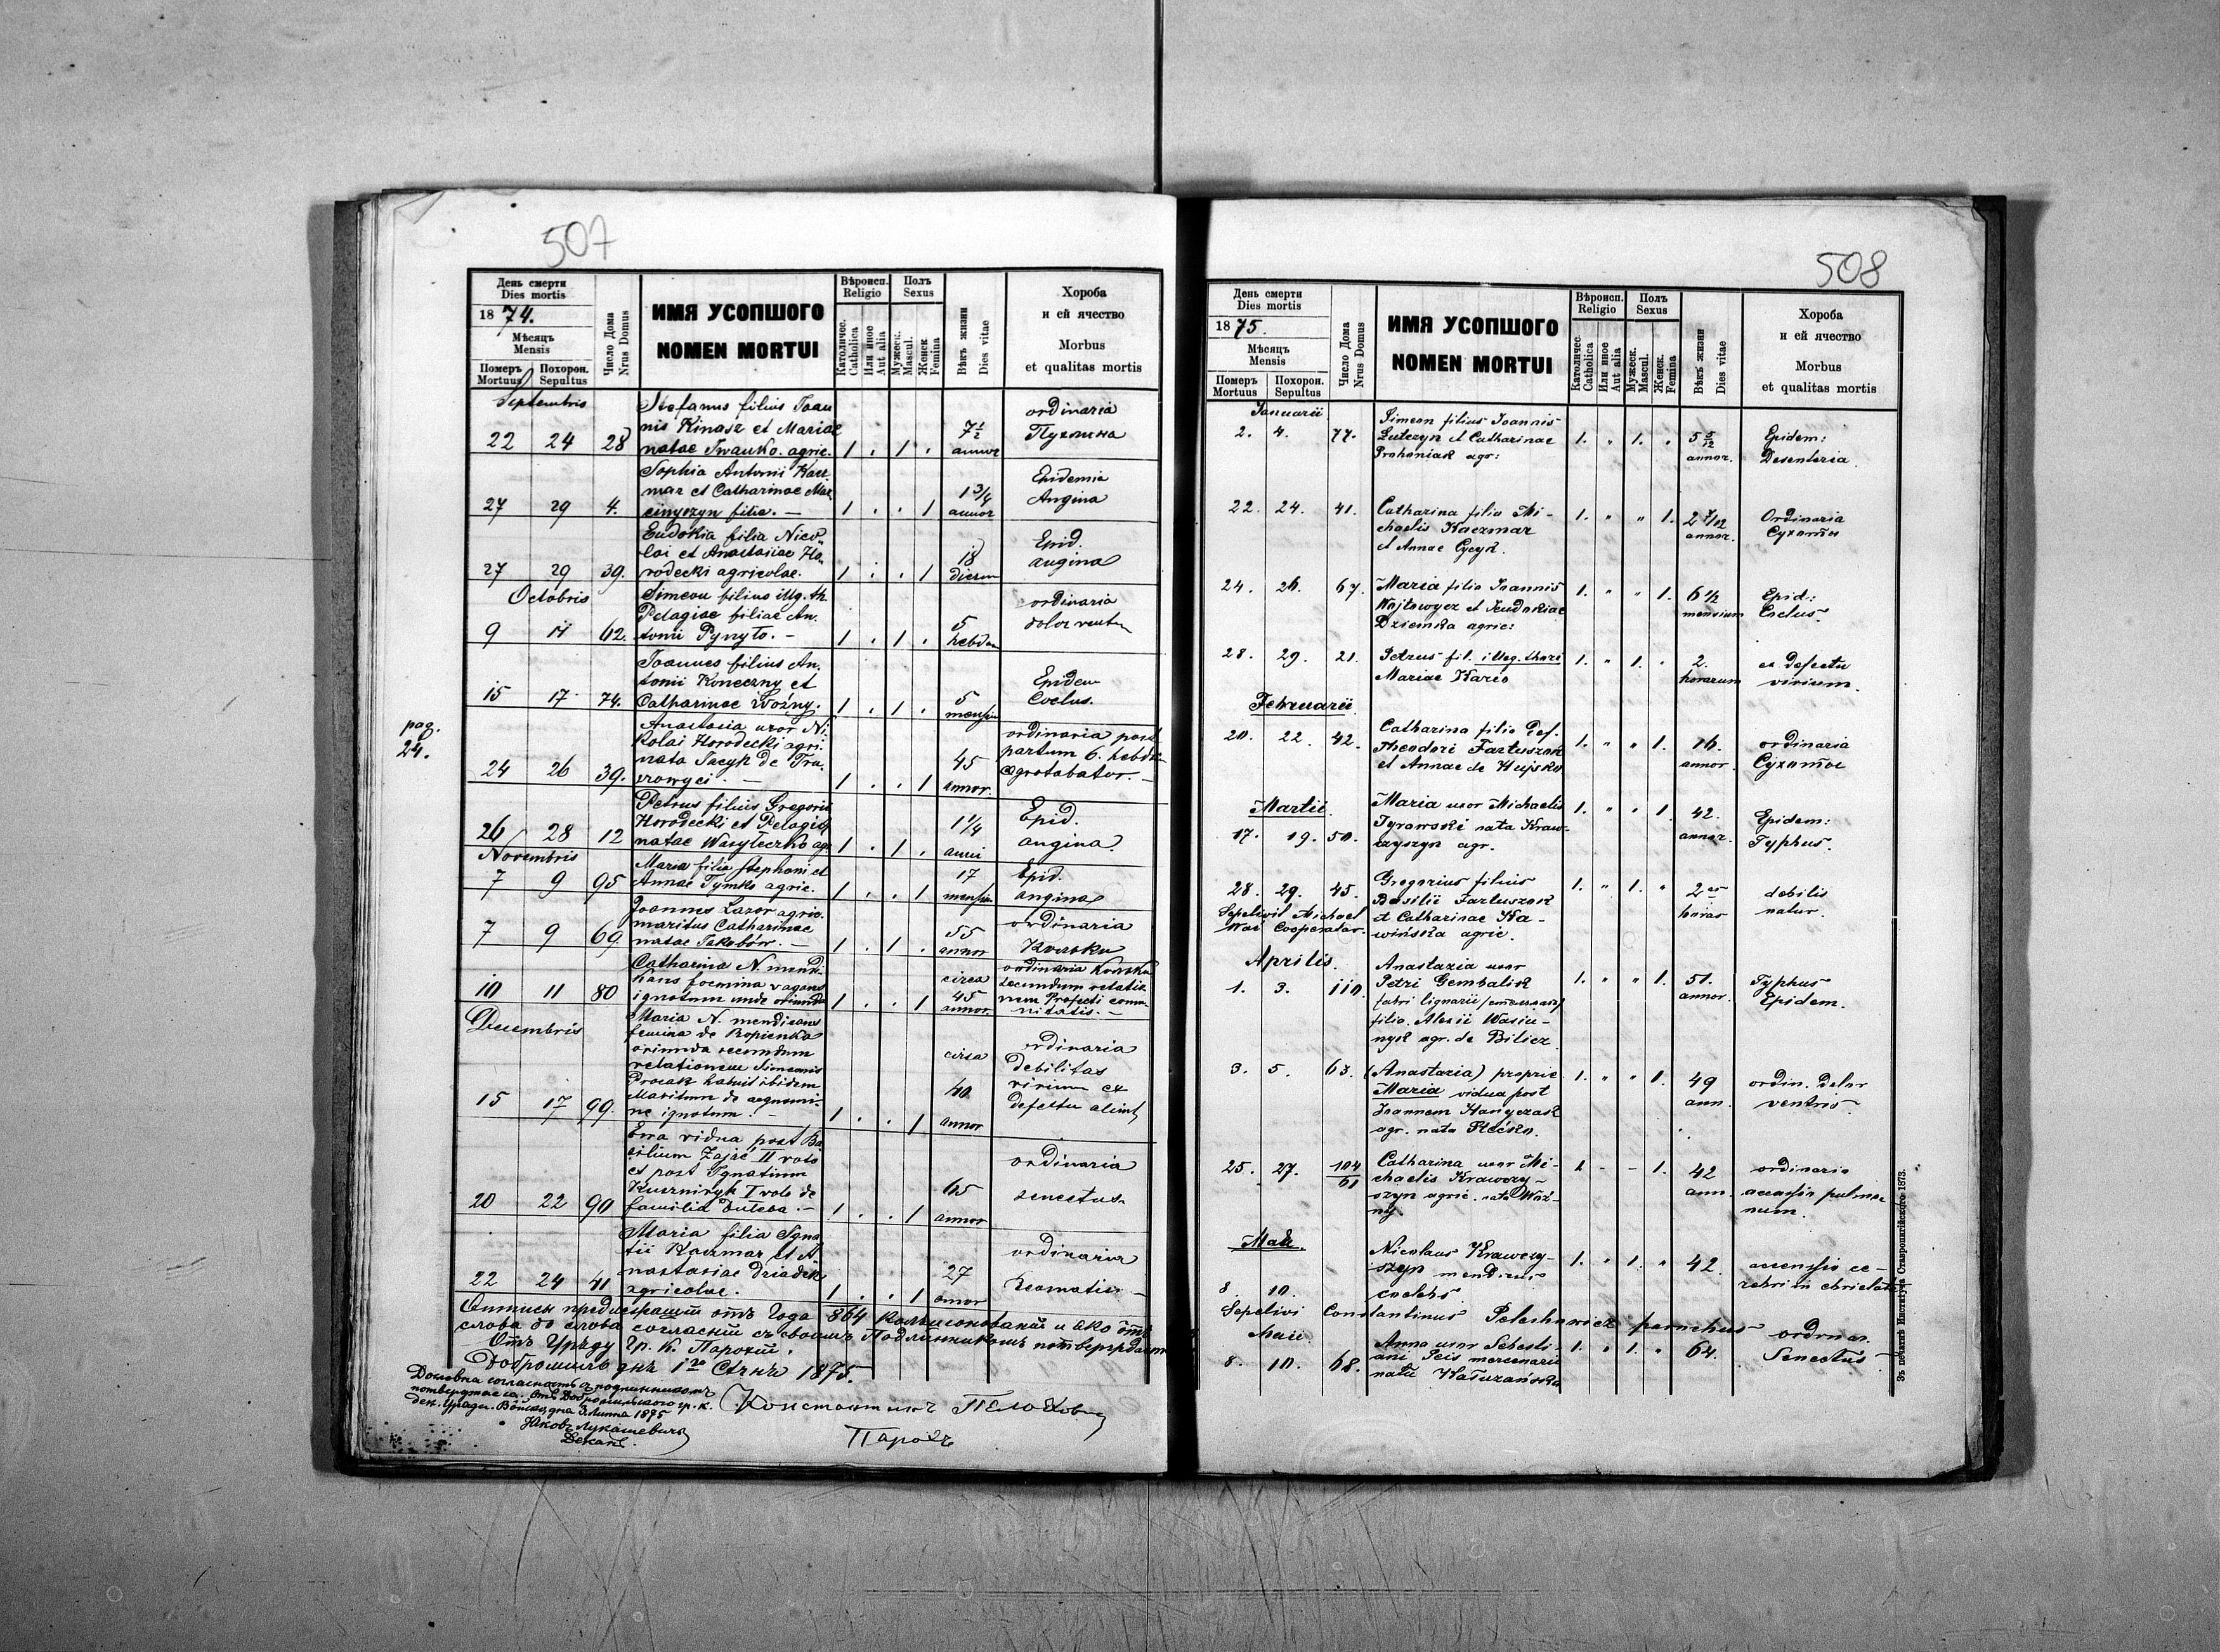 507
День смерти
Dies mortis
18 74.
Мѣсяць
Mensis
Померъ Похорон.
Mortuus Sepultus
Число Дома
Nrus Domus
ИМЯ УСОПШОГО
NOMEN MORTUI
Вѣроисп.
Religio
Католичес.
Catholica
Или иное
Aut alia
Полъ
Sexus
Мужеск.
Mascul.
Женск.
Femina
Вѣкъ жизни
Dies vitae
Хороба
и ей ячество
Morbus
et qualitas mortis
Septembris
Stefanus filius Joan
nis Kinasz et Mariae ordinaria
22 24 28 natae Iwanko. agric. 1 . 1 . 7½ annor Пухлина
Sophia Antonii Kacz
mar et Catharinae Mar Epidemia
27 29 4. cinyszyn filia. — 1 . . 1 1¾ annor Angina
Eudokia filia Nico
lai et Anastasiae Ho Epid.
27 29 39. rodecki agricolae. 1 . . 1 18 dierum angina
Octobris
Simeon filius illeg. th.
Pelagiae filiae An. ordinaria
9 11 62. tonii Pynyło. — 1 . 1 . 5 hebdom dolor ventr
Joannes filius An.
tonii Koneczny et Epidem
15 17 74. Catharinae Woźny. 1 . 1 . 5 mensiu Coclus.
pag.
24.
Anastasia uxor Ni
kolai Horodecki agri. ordinaria post
nata Jacyk de partum 6. hebd
24 26 39. 1 . . 1 45 annor. egrotabatur. —
Petrus filius Gregorii
Horodecki et Pelagiae Epid.
26 28 12 natae Wasyleczko agr 1 . 1 . 1¼ anni angina.
Novembris
Maria filia Stephani et Epid.
7 9 95 Annae Tymko agric. 1 . . 1 17 mensiu angina
Joannes Lazor agric.
maritus Catharinae ordinaria
7 9 69 natae Jakobów. — 1 . 1 . 55 annor
Catharina N. mendi ordinaria
kans foemina vagans secundum relatio
10 11 80 ignotum unde oriunda 1 . . 1 circa 45 annor. nem Profecti commu
nitatis. —
Decembris
Maria N. mendicans
femina de Ropienka
oriunda secundum ordinaria
relationem Simeonis Debilitas
Procak habuit ibidem virium ex
Maritum de cognomi defectu aliment
15 17 99. ne ignotum. — 1 . . 1 circa 40 annor
Ewa vidua post Ba
silium Zając II voto
et post Ignatium ordinaria
Kuszniryk I voto de
20 22 90 familia Duleba. — 1 . . 1 65 annor senectus
Maria filia Igna
tii Kaczmar et A ordinaria
nastasiae Dziadyk
22 24 41 agricolae. 1 . . 1 27 annor
слова до слова согласный съ своимъ Подлинникомъ потверждаетъ
Отъ Уряду Гр. К. Парохіи.
Добромиль дня 1го Січня 1875.
Дословна согласность съ подлинникомъ
потверджаеся. Отъ Добромильского гр. к.
дек. Уряду. дня 3. Липна 1875
Яковъ Лукашевичъ
Деканъ.
Константинъ Пелехович
Парохъ
508
День смерти
Dies mortis
18 75.
Мѣсяць
Mensis
Померъ Похорон.
Mortuus Sepultus
Число Дома
Nrus Domus
ИМЯ УСОПШОГО
NOMEN MORTUI
Вѣроисп.
Religio
Католичес.
Catholica
Или иное
Aut alia
Полъ
Sexus
Мужеск.
Mascul.
Женск.
Femina
Вѣкъ жизни
Dies vitae
Хороба
и ей ячество
Morbus
et qualitas mortis
Januarii
Simeon filius Joannis
2. 4. 77. Lutczyn et Catharinae 1. " 1. " 5 5/12 annor. Epidem:
Prohoniak agr: Desenteria
22. 24. 41. Catharina filia Mi- 1. " " 1. 2 7/12 annor. Ordinaria
chaelis Kaczmar Сухоты
et Annae Cycyk.
24. 26. 67. Maria filia Joannis 1. " " 1. 6 ½ mensium Epid:
Wojtowycz et Eudokiae Coclus.
Dziemka agric:
28. 29. 21. Petrus fil. illeg. thori 1. " 1. " 2. horarum ex defectu
Mariae Haris virium.
Februarii
Catharina filia Def.
20. 22. 42. Theodori Fartuszok 1. " " 1. 16. annor. ordinaria
et Annae de Hujsko Сухоты
Martii
Maria uxor Michaelis 1. " " 1. 42. annor. Epidem:
17. 19. 50. Tyrawski nata Kraw- Typhus.
czyszyn agr.
28. 29. 45. Gregorius filius 1. " 1. " 2as horas debilis
Basilii Fartuszok natur.
Sepelivit Michael et Catharinae Ha-
Woś Cooperator. wińska agric.
Aprilis.
Anastazia uxor
1. 3. 110. Petri Gembalik 1. " " 1. 51. annor. Typhus
fabri lignarii Epidem.
filia Alexii Wasiu-
nyk agr. de Bilicz
3. 5. 63. (Anastazia) proprie 1. " " 1. 49 ann. ordin. dolor
Maria vidua post ventris.
Joannem Hanyczak
agr. nata
25. 27. 104/61 Catharina uxor Mi- 1. - - 1. 42 ann. ordinaria
chaelis Krawczy- accensio pulmo
szyn agric. nata Woź- num.
ny.
Maii.
Nicolaus Krawczy- 1. " 1. " 42. accensio ce-
szyn mendicus rebri in ebrietate
8. 10. coelebs.
Sepelivi Constantinus Pelechowicz parochus
Maii
Anna uxor Sebasti- 1. " 1. " 64. ordinar.
8. 10. 68. ani Peis mercenarii Senectus
nata
Зъ печатнѣ Института Ставропигійского 1873.